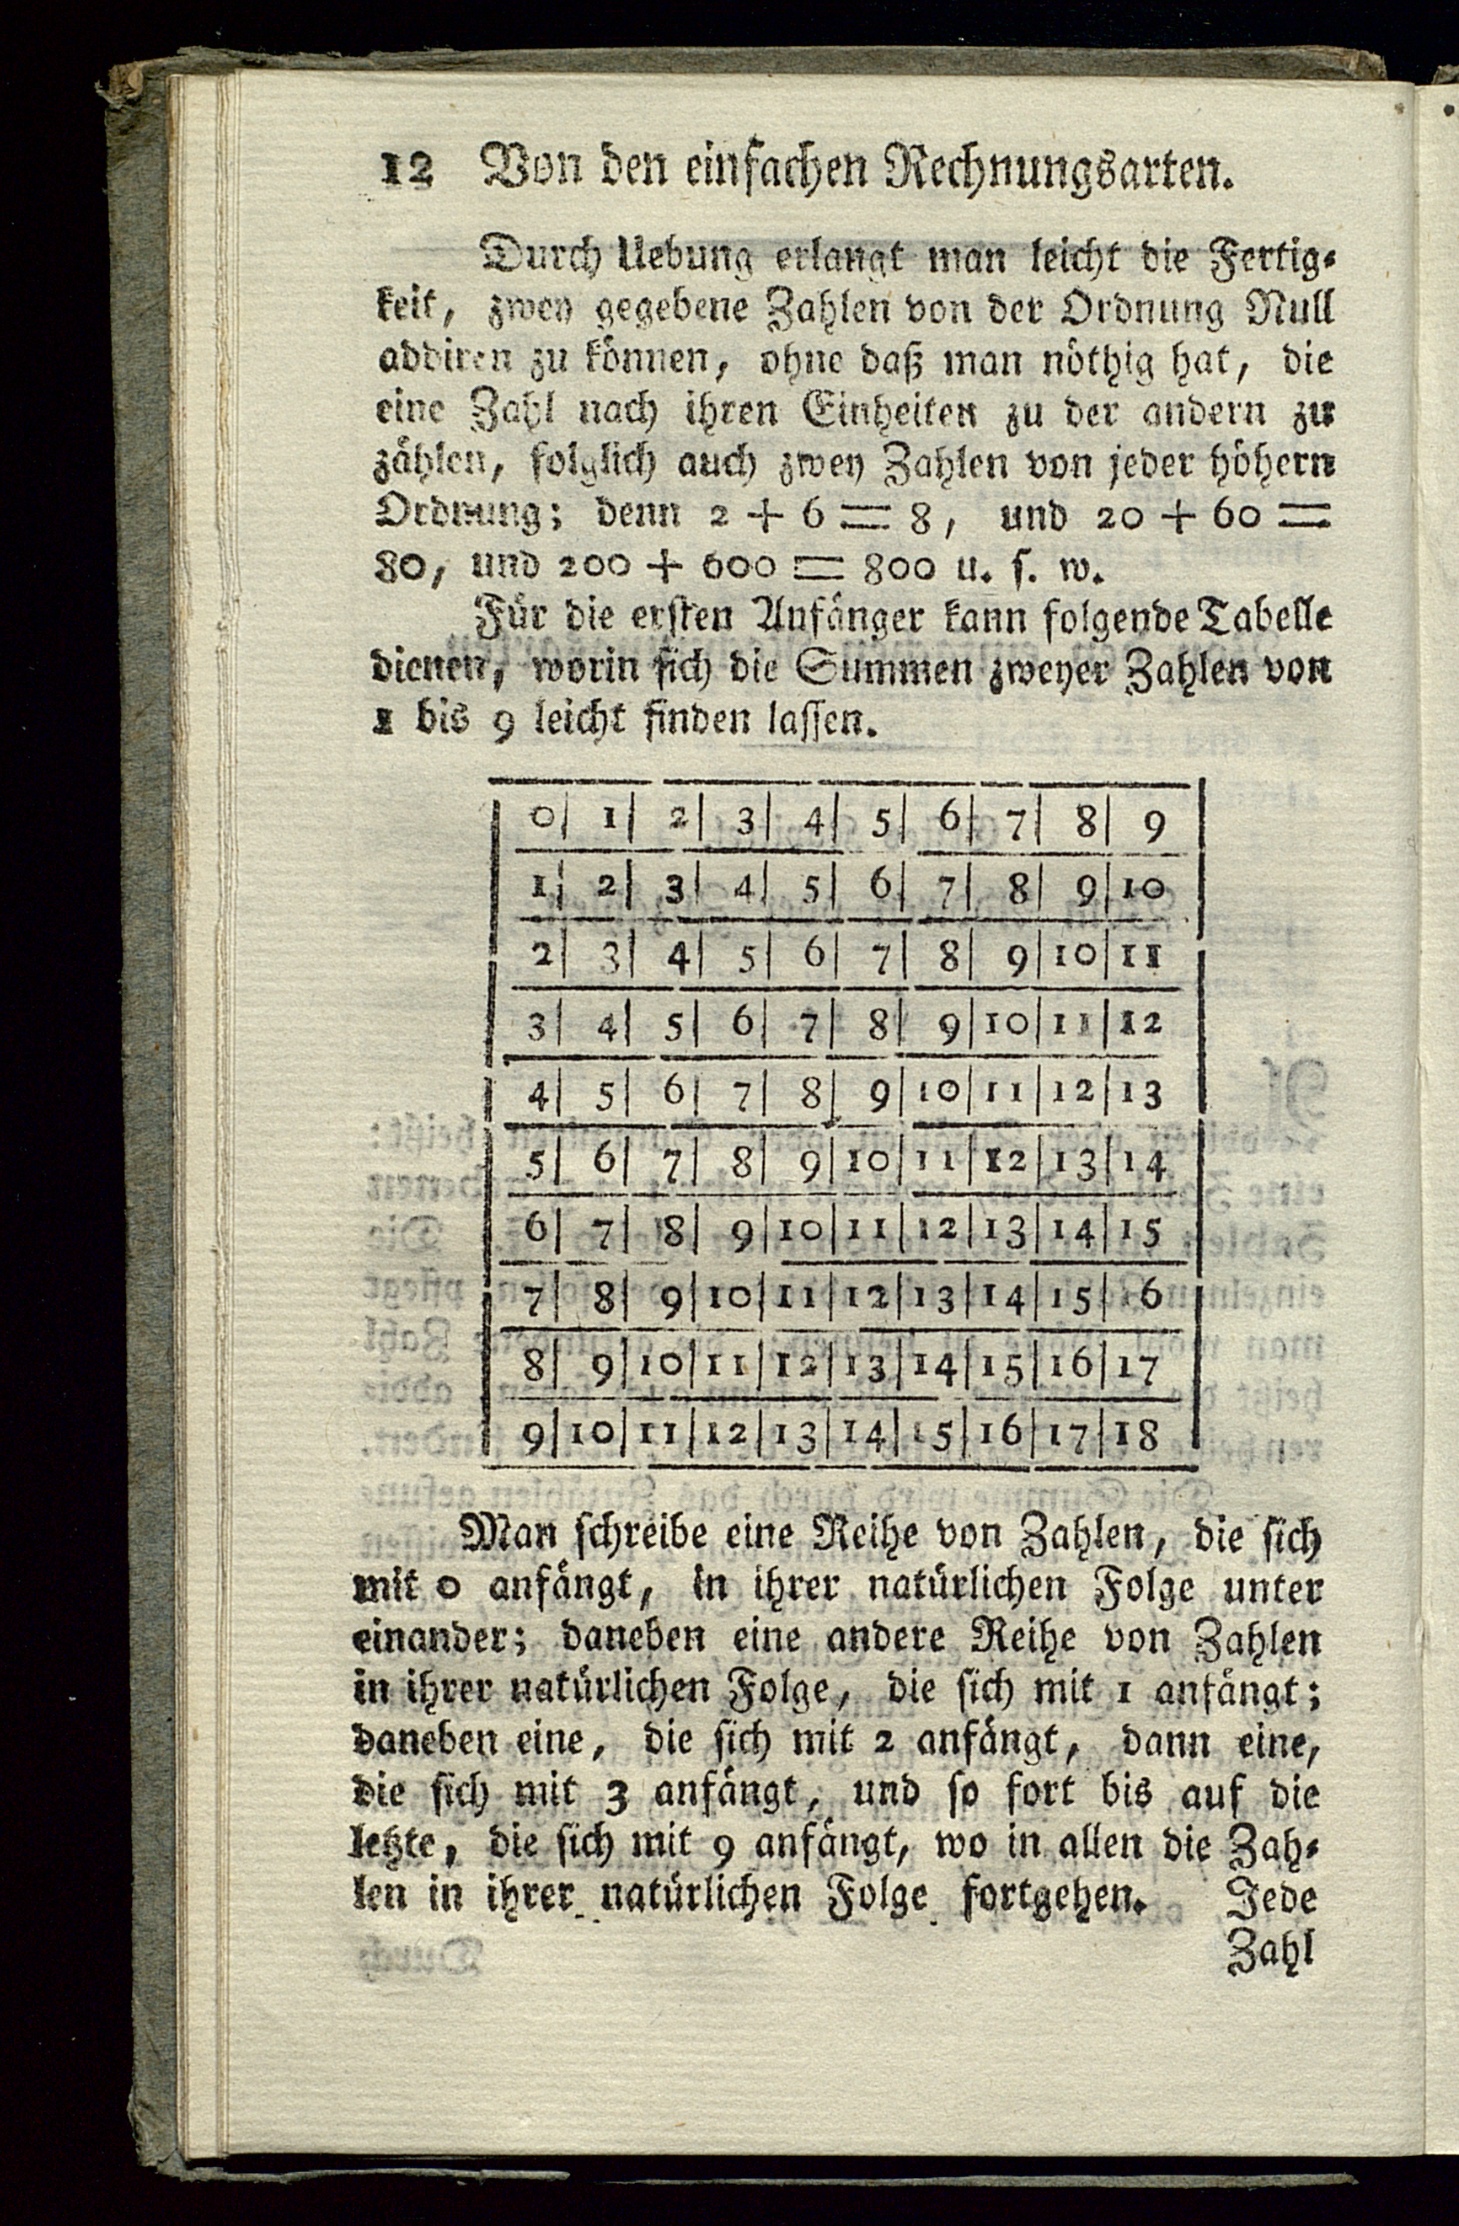 12 Von den einfachen Rechnungsarten.
Durch Uebung erlangt man leicht die Fertig-
keit, zwey gegebene Zahlen von der Ordnung Null
addiren zu können, ohne daß man nöthig hat, die
eine Zahl nach ihren Einheiten zu der andern zu
zählen, folglich auch zwey Zahlen von jeder höhern
Ordnung; denn 2 + 6 = 8, und 20 + 60 =
80, und 200 + 600 = 800 u. s. w.
Für die ersten Anfänger kann folgende Tabelle
dienen, worin sich die Summen zweyer Zahlen von
1 bis 9 leicht finden lassen.
0| 1| 2| 3| 4| 5| 6| 7| 8| 9
1| 2| 3| 4| 5| 6| 7| 8| 9|10
2| 3| 4| 5| 6| 7| 8| 9|10|11
3| 4| 5| 6| 7| 8| 9|10|11|12
4| 5| 6| 7| 8| 9|10|11|12|13
5| 6| 7| 8| 9|10|11|12|13|14
6| 7| 8| 9|10|11|12|13|14|15
7| 8| 9|10|11|12|13|14|15|16
8| 9|10|11|12|13|14|15|16|17
9|10|11|12|13|14|15|16|17|18
Man schreibe eine Reihe von Zahlen, die sich
mit 0 anfängt, in ihrer natürlichen Folge unter
einander; daneben eine andere Reihe von Zahlen
in ihrer natürlichen Folge, die sich mit 1 anfängt;
daneben eine, die sich mit 2 anfängt, dann eine,
die sich mit 3 anfängt, und so fort bis auf die
letzte, die sich mit 9 anfängt, wo in allen die Zah-
len in ihrer natürlichen Folge fortgehen. Jede
Zahl